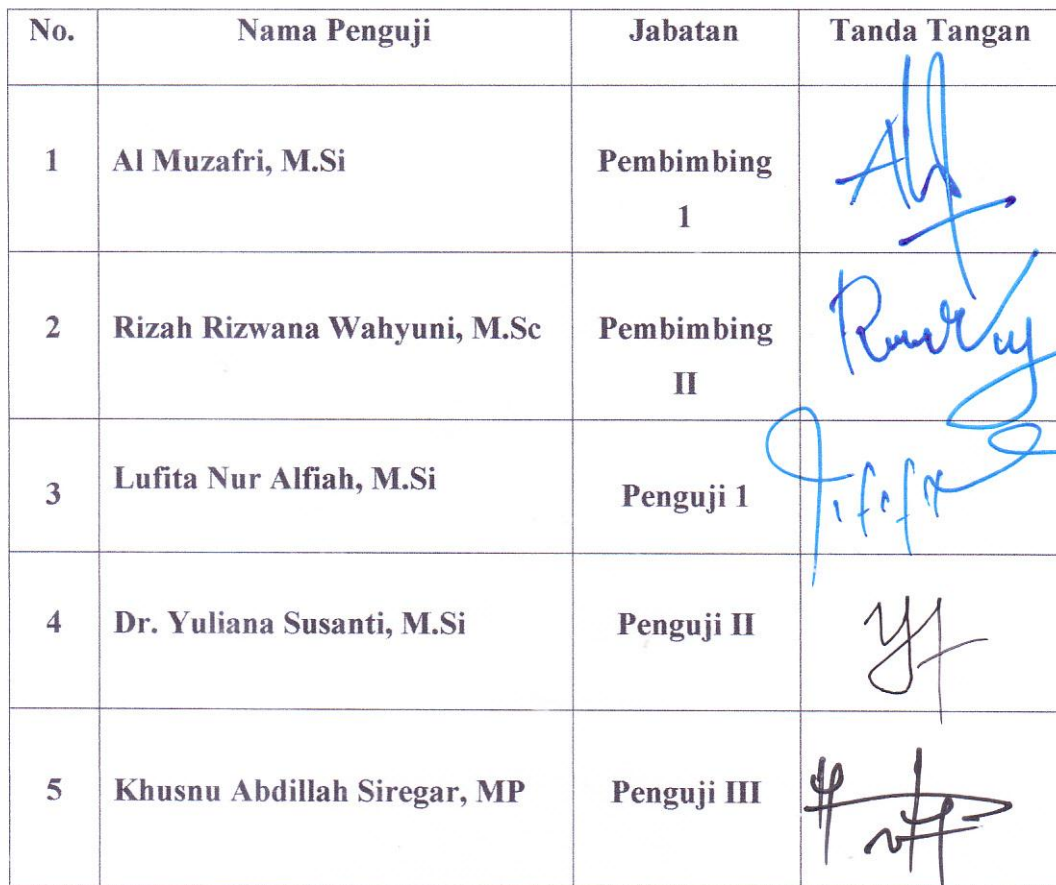 No. Nama Penguji Jabatan Tanda Tangan
1 Al Muzafri, M.Si Pembimbing
1
2 Rizah Rizwana Wahyuni, M.Sc Pembimbing
II
3 Lufita Nur Alfiah, M.Si Penguji 1
4 Dr. Yuliana Susanti, M.Si Penguji II
5 Khusnu Abdillah Siregar, MP Penguji III